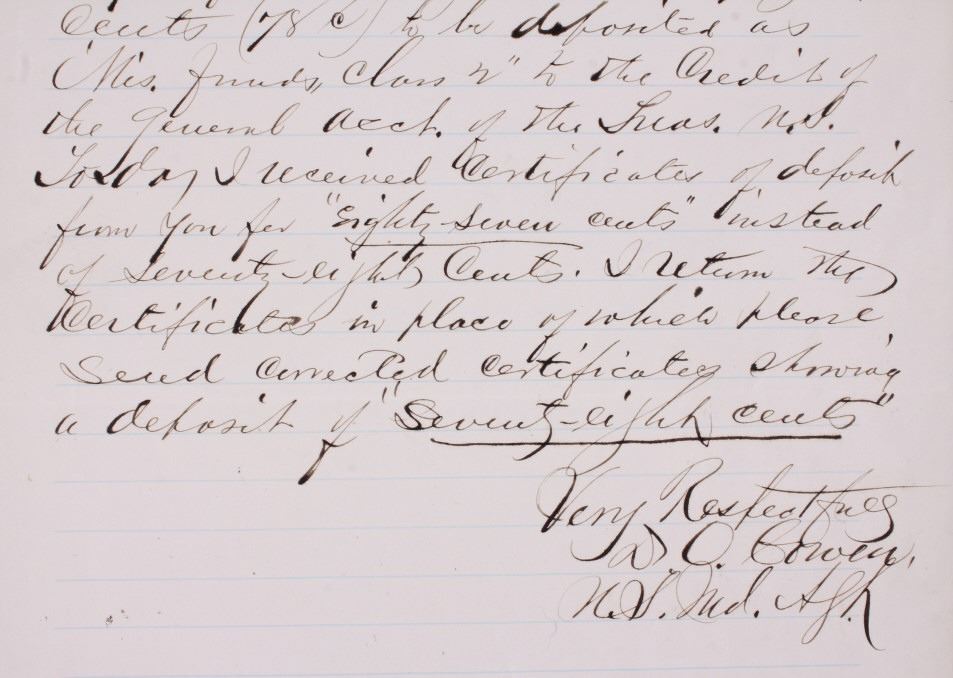 Cents (78 c) to be deposited as
Mis. funds, Class 2" to the Credit of
the General Acct. of the Treas. U.S.
To day I received Certificates of deposit
from you for "Eighty-seven cents" instead
of seventy-eight Cents. I return the
Certificates in place of which please
send corrected certificates showing
a deposit of "Seventy-eight cents"
Very Respectfully
D. C. Cowen,
U.S. Ind. Agt.